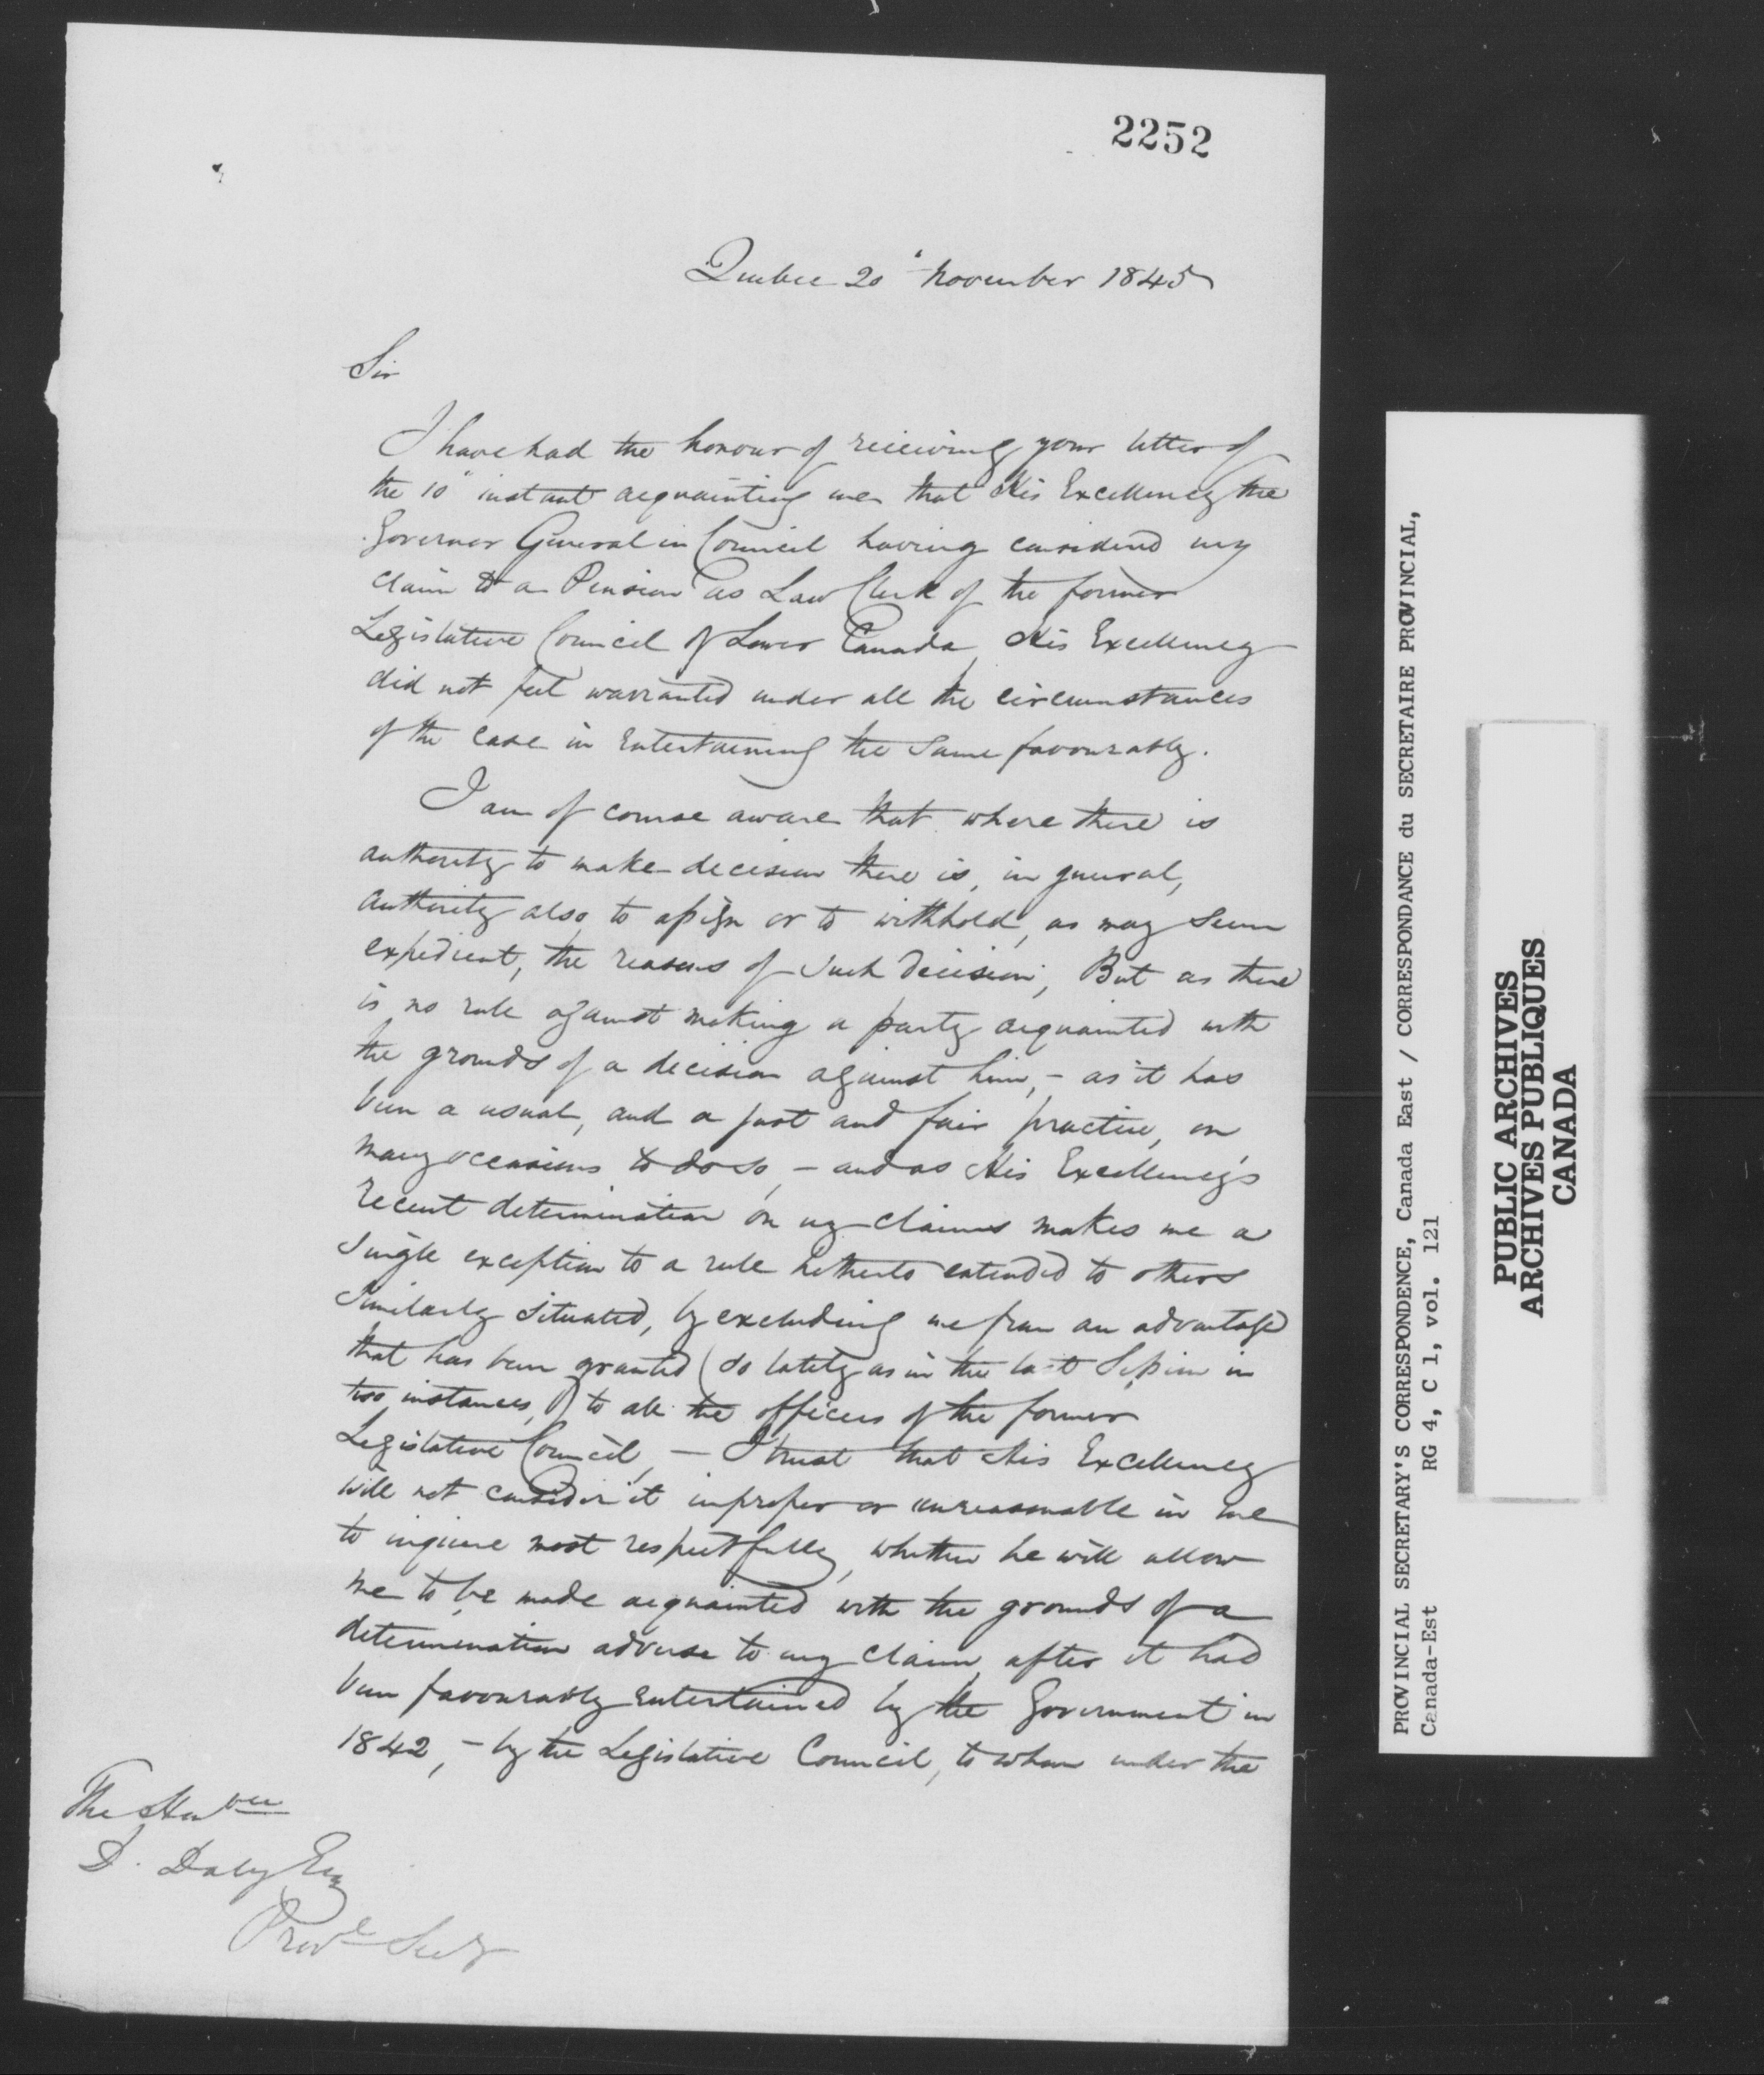 2252
Quebec 20" November 1845
Sir
I have had the honour of receiving your letter of
the 10" instant acquainting me that His Excellency the
Governor General in Council having considered my
claim to a Pension as Law Clerk of the former
Legislative Council of Lower Canada, His Excellency
did not feel warranted under all the circumstances
of the case in entertaining the same favourably.
I am of course aware that where there is
authority to make decision there is, in general,
authority also to assign or to withhold, as may seem
expedient, the reasons of such decision; But as there
is no rule against making a party acquainted with
the grounds of a decision against him, - as it has
been a usual, and a just and fair practice, on
many occasions to do so, - and as His Excellency's
recent determination on my claims makes me a
single exception to a rule hitherto extended to others
similarly situated, by excluding me from an advantage
that has been granted (so lately as in the last Session in
two instances,) to all the officers of the former
Legislative Council, - I trust that His Excellency
will not consider it improper or unreasonable in me
to inquire most respectfully, whether he will allow
me to be made acquainted with the grounds of a
determination adverse to my claim, after it had
been favourably entertained by the Government in
1842, - by the Legislative Council, to whom under the
The Honble
D. Daly Esq
Provl Secy
PROVINCIAL SECRETARY'S CORRESPONDENCE, Canada East / CORRESPONDANCE du SECRETAIRE PROVINCIAL,
Canada-Est RG 4, C 1, vol. 121
PUBLIC ARCHIVES
ARCHIVES PUBLIQUES
CANADA